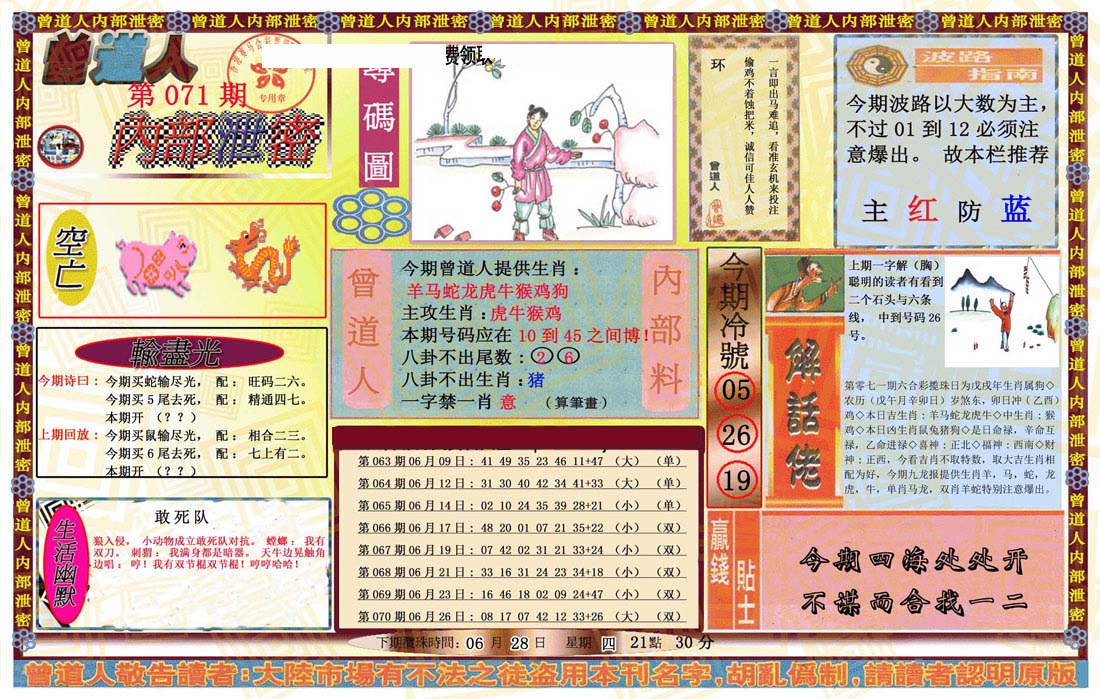 曾道人内部泄密 曾道人内部泄密 曾道人内部泄密 曾道人内部泄密 曾道人内部泄密 曾道人内部泄密 曾道人内部泄密
曾道人内部泄密
曾道人内部泄密
曾道人内部泄密
曾道人内部泄密
曾道人内部泄密
曾道人内部泄密
曾道人内部泄密
曾道人内部泄密
曾道人
第 071 期
内部泄密
专用章
尋碼圖
费领取
一言即出马难追，看准玄机来投注
偷鸡不着蚀把米，诚信可佳人人赞
环
曾道人
波路
指南
今期波路以大数为主，
不过 01 到 12 必须注
意爆出。 故本栏推荐
主 红 防 蓝
空亡
輸盡光
今期诗曰： 今期买蛇输尽光， 配： 旺码二六。
今期买 5 尾去死， 配： 精通四七。
本期开 （？？）
上期回放： 今期买鼠输尽光， 配： 相合二三。
今期买 6 尾去死， 配： 七上有二。
本期开 （？？）
生活幽默
敢死队
狼入侵， 小动物成立敢死队对抗。 螳螂： 我有
双刀。 刺猬： 我满身都是暗器。 天牛边晃触角
边唱： 哼！我有双节棍双节棍！哼哼哈哈！
曾道人
内部料
今期曾道人提供生肖：
羊马蛇龙虎牛猴鸡狗
主攻生肖：虎牛猴鸡
本期号码应在 10 到 45 之间博！
八卦不出尾数：② ⑥
八卦不出生肖：猪
一字禁一肖 意 （算筆畫）
第 063 期 06 月 09 日： 41 49 35 23 46 11+47 （大） （单）
第 064 期 06 月 12 日： 31 30 40 42 34 41+33 （大） （单）
第 065 期 06 月 14 日： 02 10 24 35 39 28+21 （小） （单）
第 066 期 06 月 17 日： 48 20 01 07 21 35+22 （小） （双）
第 067 期 06 月 19 日： 07 42 02 31 21 33+24 （小） （双）
第 068 期 06 月 21 日： 33 16 31 24 23 34+18 （小） （双）
第 069 期 06 月 23 日： 16 46 18 02 09 24+47 （小） （双）
第 070 期 06 月 26 日： 08 17 07 42 12 33+26 （大） （双）
下期攬珠時間：06 月 28 日 星期 四 21點 30 分
今期冷號
05
26
19
解話佬
上期一字解（胸）
聪明的读者有看到
二个石头与六条
线， 中到号码 26
号。
第零七一期六合彩揽珠日为戊戌年生肖属狗◇
农历（戊午月辛卯日）岁煞东，卯日冲（乙酉）
鸡◇本日吉生肖：羊马蛇龙虎牛◇中生肖：猴
鸡◇本日凶生肖鼠兔猪狗◇是日命禄，辛命互
禄，乙命进禄◇喜神：正北◇福神：西南◇财
神：正西，今看吉肖不取特数，取大吉生肖相
配为好，今期九龙报提供生肖羊，马，蛇，龙
虎，牛，单肖马龙，双肖羊蛇特别注意爆出。
贏錢貼士
今期四海处处开
不谋而合找一二
曾道人敬告讀者：大陸市場有不法之徒盗用本刊名字，胡亂僞制，請讀者認明原版